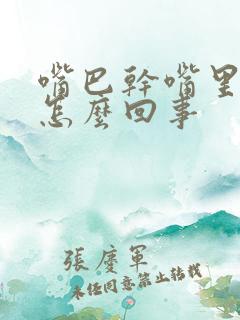 嘴巴幹嘴里
怎麼回事
張慶軍
未经同意禁止转载